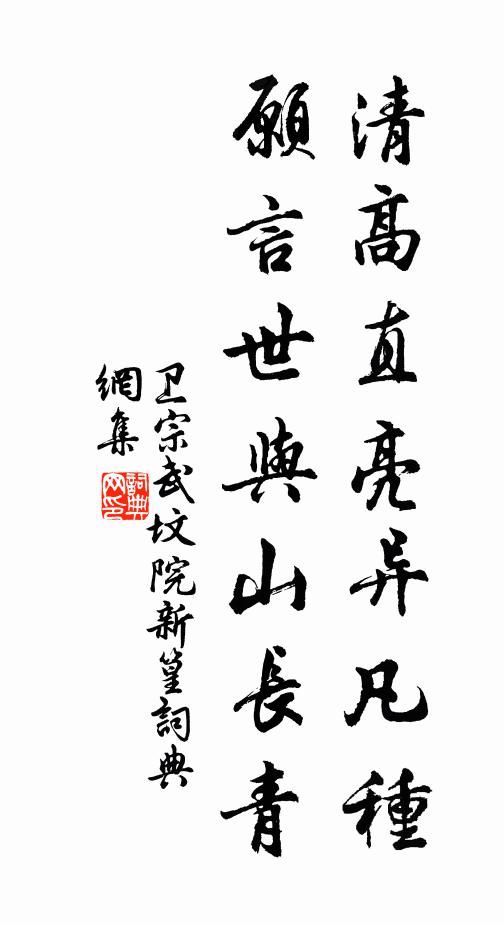 清高直亮异凡種
願言世與山長青
卫宗武坟院新篁詞典
網集
詞典
网印